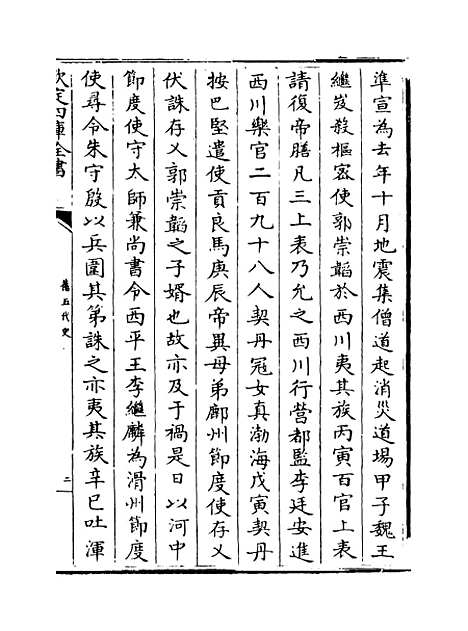 準宣為去年十月地震集僧道起消災道場甲子魏王
繼岌殺樞密使郭崇韜於西川夷其族丙寅百官上表
請復帝膳凡三上表乃允之西川行營都監李廷安進
西川樂官二百九十八人契丹冦女真渤海戊寅契丹
按巴堅遣使貢良馬庚辰帝異母弟鄜州節度使存乂
伏誅存乂郭崇韜之子婿也故亦及于禍是日以河中
節度使守太師兼尚書令西平王李繼麟為滑州節度
使尋令朱守殷以兵圍其第誅之亦夷其族辛巳吐渾
欽定四庫全書
舊五代史
二